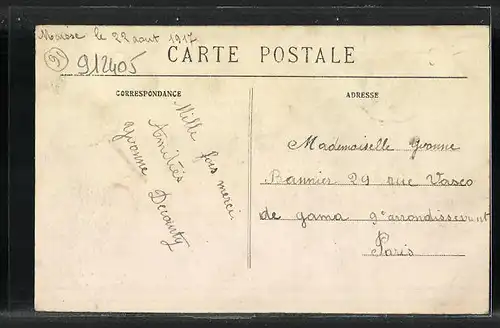 le 22 aout 1917
91
912405
CARTE POSTALE
CORRESPONDANCE
ADRESSE
Mille fois merci
Amitiés
Yvonne
Mademoiselle Yvonne
Bannier 29 rue Vasco
de gama 9e arrondissement
Paris